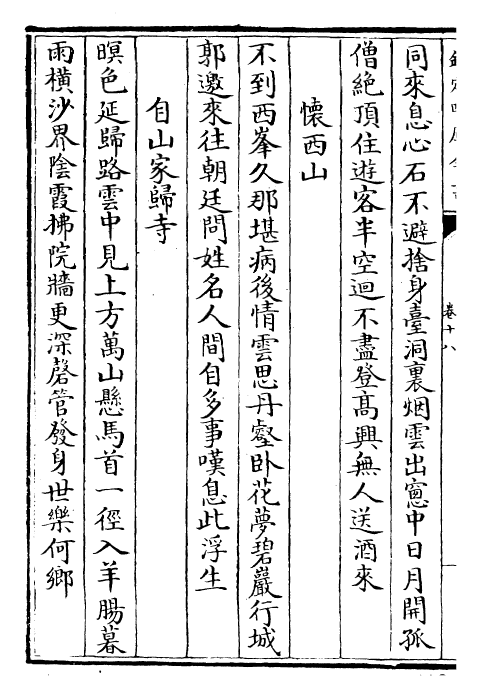 同來息心石不避捨身臺洞裏烟雲出窻中日月開孤
僧絶頂住遊客半空迴不盡登髙興無人送酒來
懷西山
不到西峯久那堪病後情雲思丹壑卧花夢碧巖行城
郭邀來往朝廷問姓名人間自多事嘆息此浮生
自山家歸寺
暝色延歸路雲中見上方萬山懸馬首一徑入羊腸暮
雨横沙界陰霞拂院牆更深磬管發身世樂何鄉
卷十八